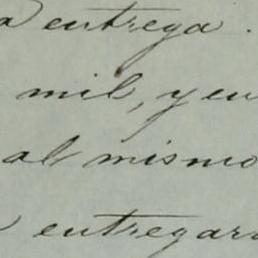 a entrega.
mil, y en
al mismo
entregar